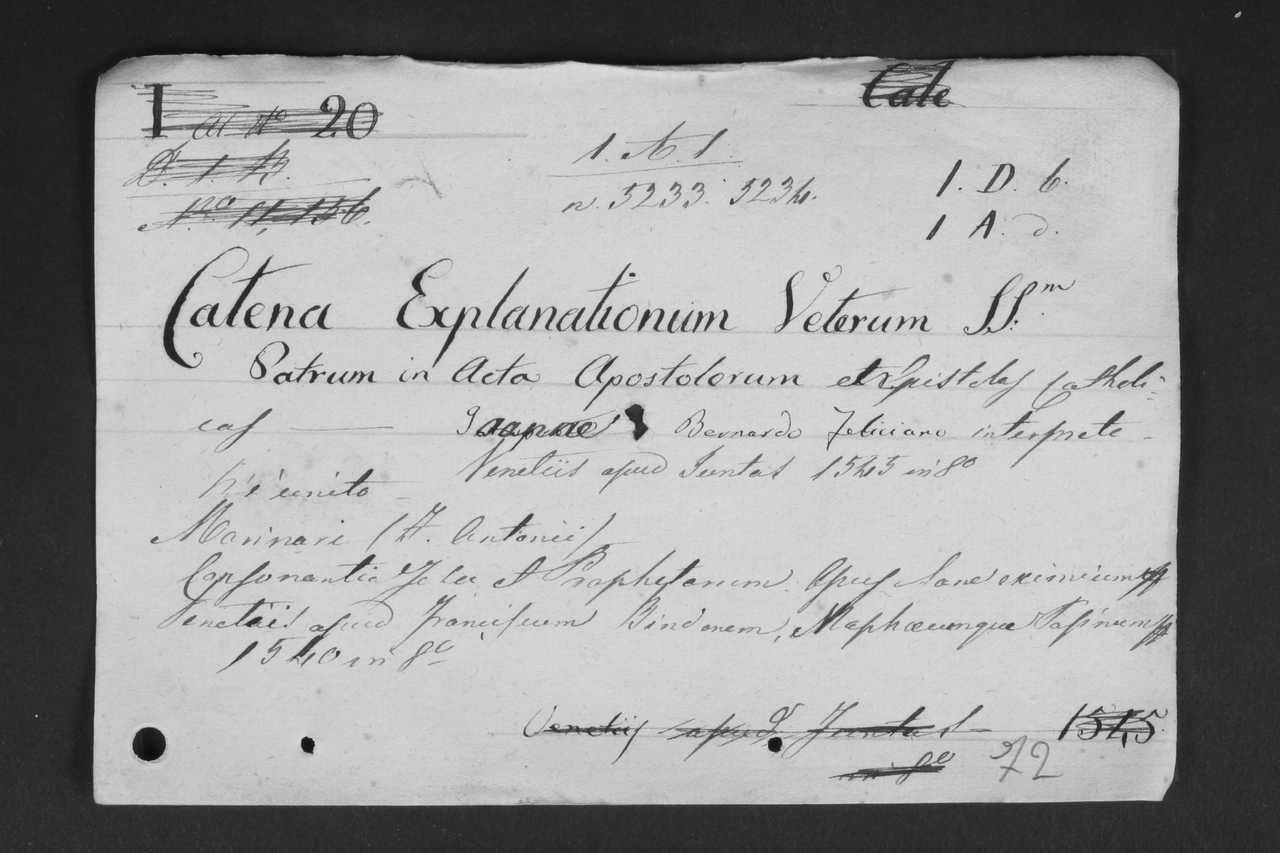 I 20
Cate
1. A. 1.
n. 5233. 5234.
1. D. 6.
1 A. d.
Catena Explanationum Veterum SS.m
Patrum in Acta Apostolorum et Epistolas Catholi=
cas — Bernardo Feliciano interprete -
Venetiis apud Juntas 1545 in 8o
Vi è unito -
Marinari (F. Antonii)
Consonantia Jesu et Prophetarum. Opus sane eximium
Venetiis apud Franciscum Bindonem, Maphæumque Pasinum
1540 in 8o
Venetiis apud Juntas - 1545
in 8o
72